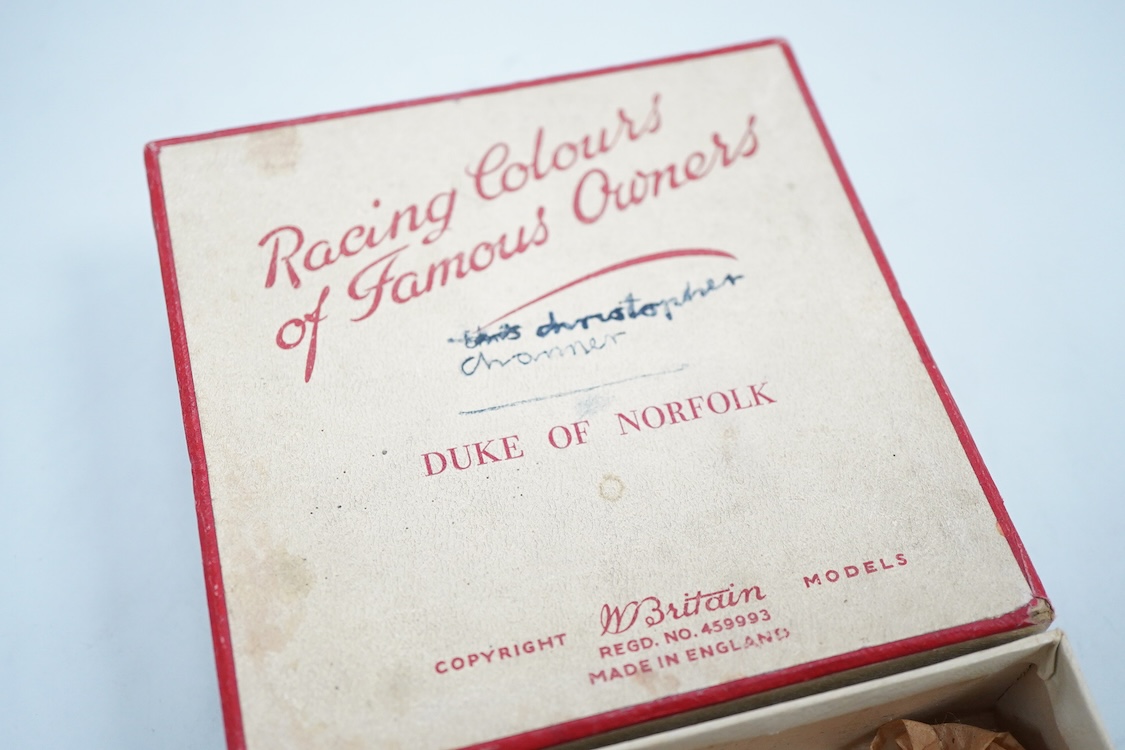 Racing Colours
of Famous Owners
christopher
channer
DUKE OF NORFOLK
COPYRIGHT W Britain MODELS
REGD. NO. 459993
MADE IN ENGLAND